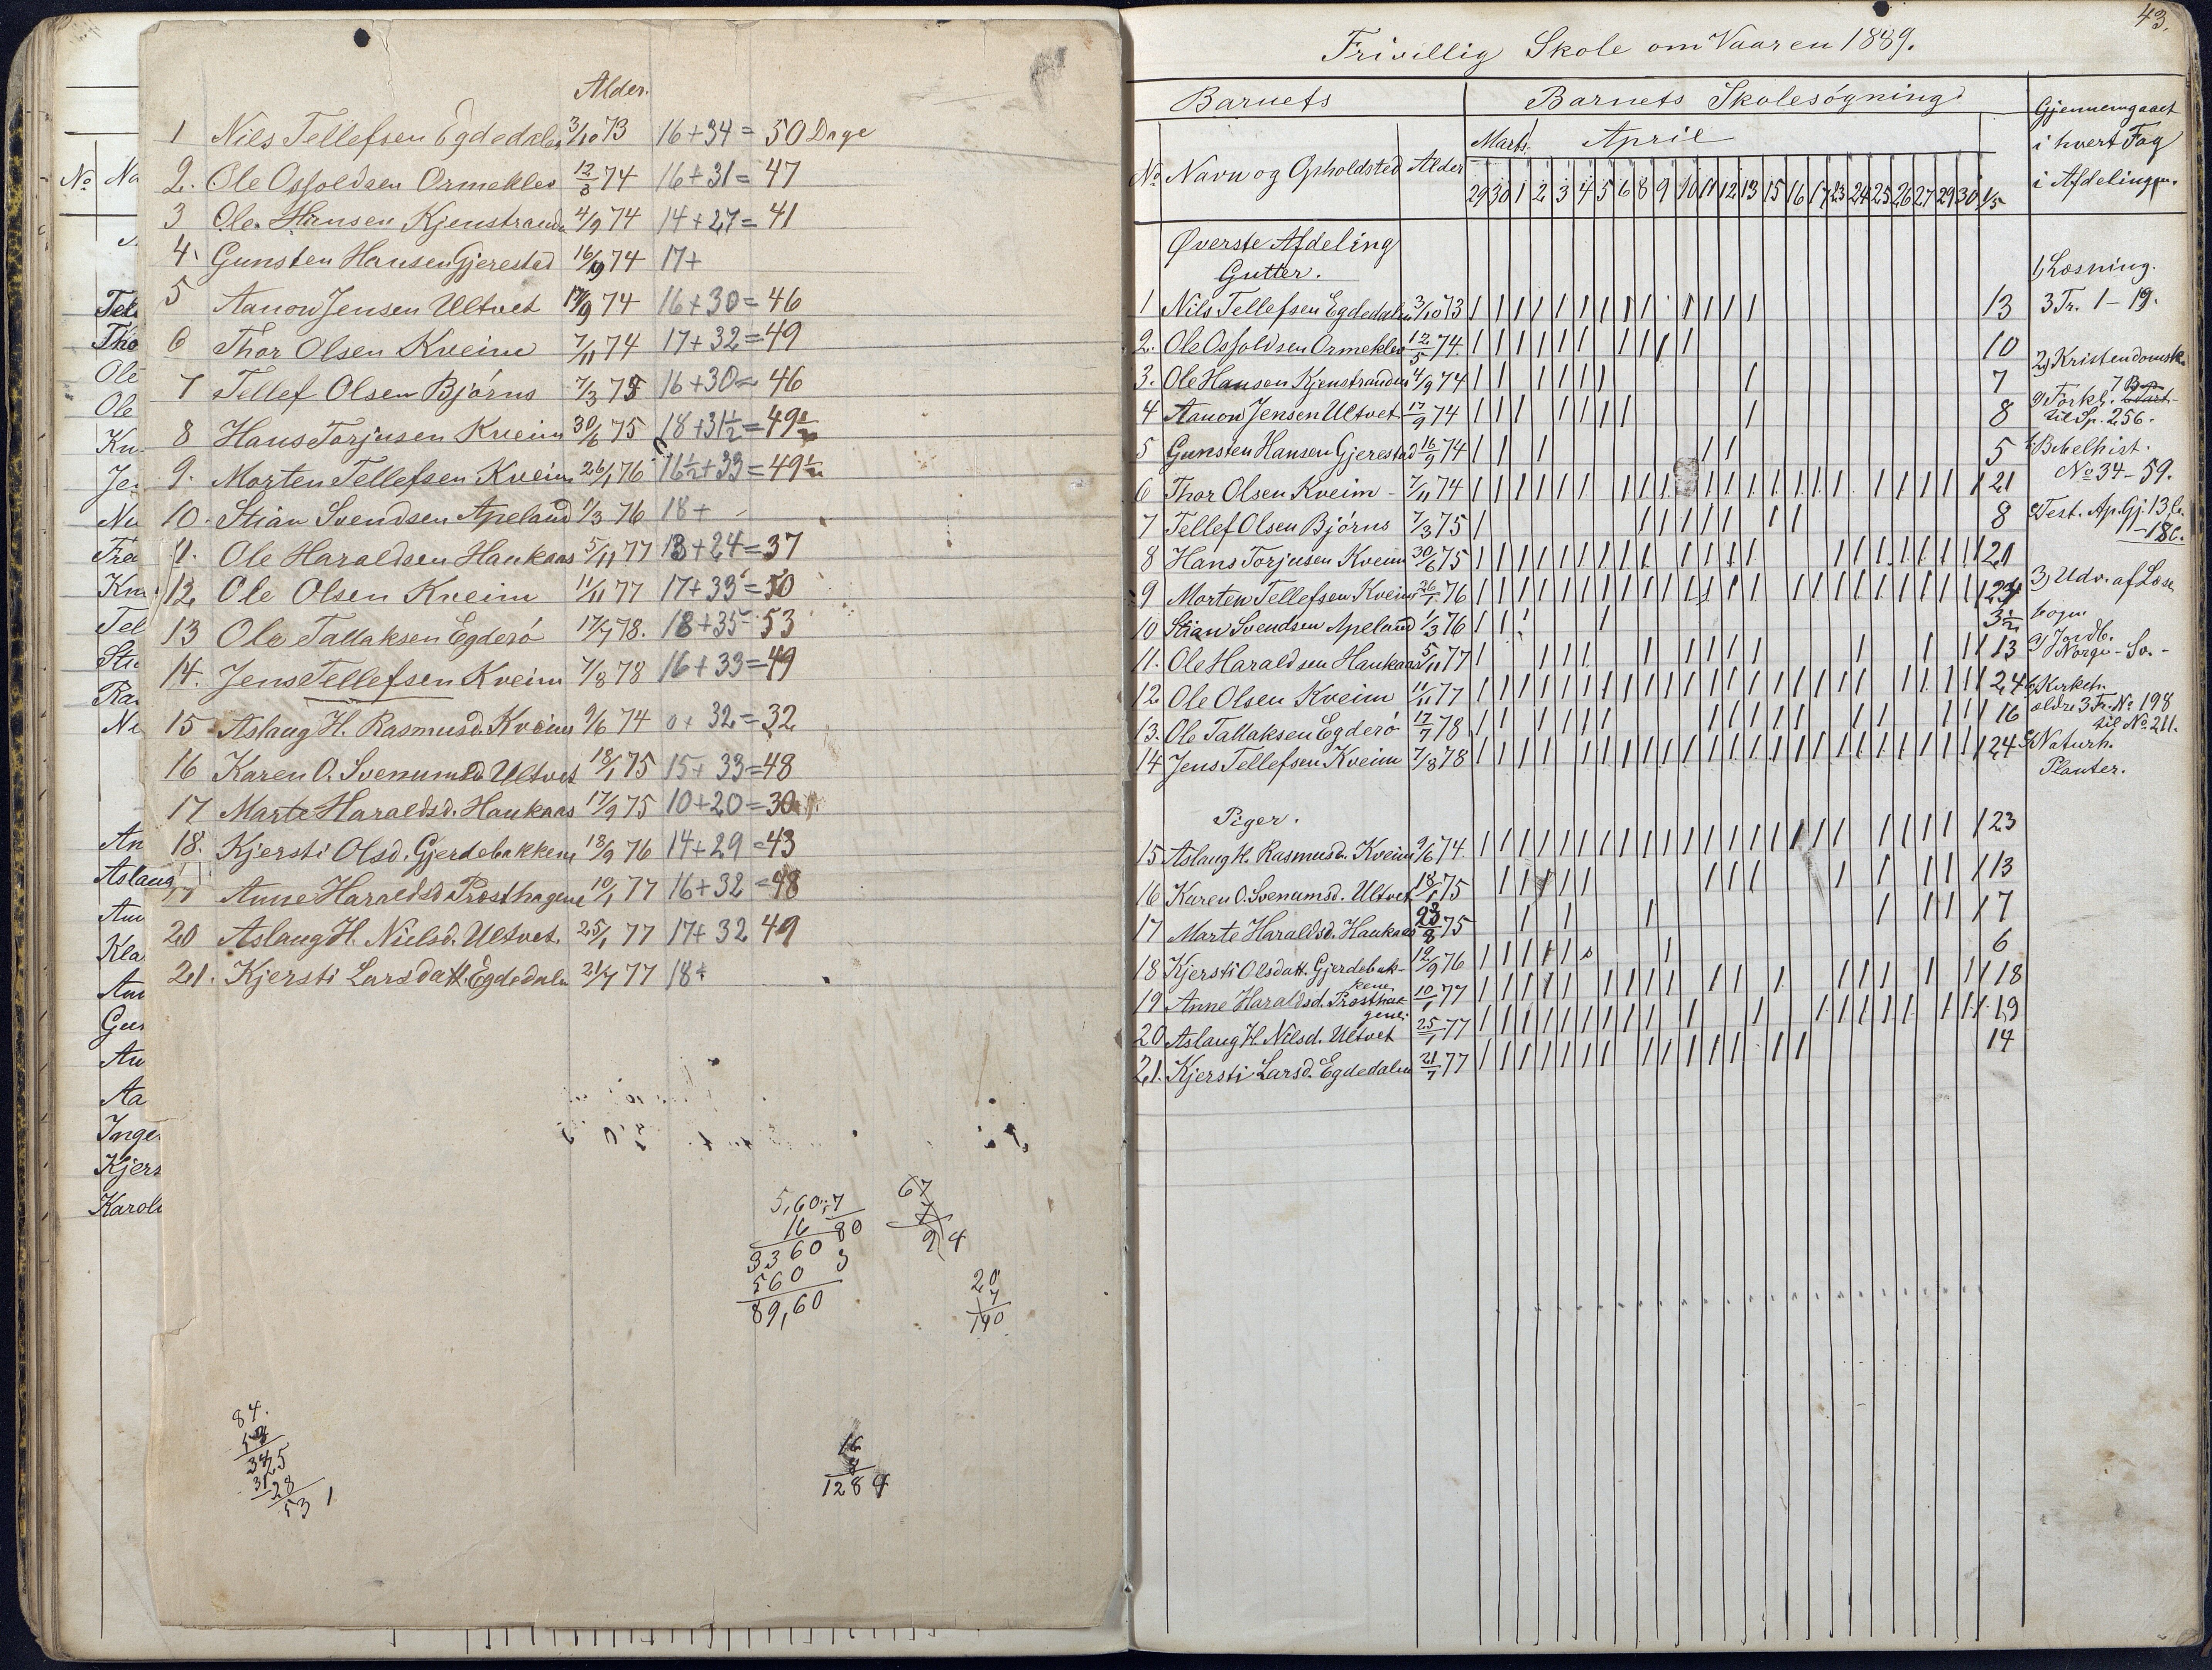 Alder.
1 Nils Tellefsen Egdedalen 3/10 73 16+34= 50 Dage
2. Ole Osfoldsen Ormeklev 12/5 74 16+31= 47
3 Ole Hansen Kjenstranden 4/9 74 14+27= 41
4. Gunsten Hansen Gjerestad 16/9 74 17+
5 Aanon Jensen Ultvet 17/9 74 16+30= 46
6 Thor Olsen Kveim 7/11 74 17+32=49
7 Tellef Olsen Bjørns 7/3 75 16+30= 46
8 Hans Torjusen Kveim 30/6 75 18+31½=49½
9. Morten Tellefsen Kveim 26/1 76 16½+33=49½
10. Stian Svendsen Apeland 1/3 76 18+
11. Ole Haraldsen Haukaas 5/11 77 13+24=37
12. Ole Olsen Kveim 11/11 77 17+33=50
13 Ole Tallaksen Egderø 17/7 78. 18+35= 53
14. Jens Tellefsen Kveim 7/8 78 16+33=49
15 Aslaug H. Rasmusd. Kveim 9/6 74 0+ 32=32
16 Karen O. Svenumsd. Ultvet 18/1 75 15+33=48
17 Marte Haraldsd. Haukaas 17/9 75 10+20=30
18. Kjersti Olsd. Gjerdebakkene 13/9 76 14+29=43
19 Anne Haraldsd. Prosthagene 10/1 77 16+32=48
20 Aslaug H. Nielsd. Ultvet. 25/1 77 17+ 32 49
21. Kjersti Larsdatt. Egdedalen 21/7 77 18+
5,60:7
16 80
3360 3
560
89,60
67
7
20
7
140
84.
531
16
8
128
No Na
Tel
Tho
Ole
Ole
Kn
Je
Nu
Kn
Tel
Sti
Ra
Ne
An
Aslaug
An
Kla
An
Gu
An
Aa
Inge
Kjers
Karol
43.
Frivillig Skole om Vaaren 1889.
Barnets Barnets Skolesøgning Gjennemgaaet
i hvert Fag
i Afdelingen.
No Navn og Opholdsted Alder Marts. April
29 30 1 2 3 4 5 6 8 9 10 11 12 13 15 16 17 23 24 25 26 27 29 30 1/5
Øverste Afdeling
Gutter.
1 Nils Tellefsen Egdedalen 3/10 73 13
2. Ole Osfoldsen Ormeklev 12/5 74. 10
3. Ole Hansen Kjenstranden 4/9 74 7
4 Aanon Jensen Ultvet 17/9 74 8
5 Gunsten Hansen Gjerestad 16/9 74 5
6 Thor Olsen Kveim - 7/11 74 21
7 Tellef Olsen Bjørns 7/3 75 8
8 Hans Torjusen Kveim 30/6 75 21
9 Morten Tellefsen Kveim 26/1 76 24
10 Stian Svendsen Apeland 1/3 76 3½
11. Ole Haraldsen Haukaas 5/11 77 13
12 Ole Olsen Kveim 11/11 77 24
13. Ole Tallaksen Egderø 17/7 78 16
14 Jens Tellefsen Kveim 7/8 78 24
Piger.
15 Aslaug H. Rasmusd. Kveim 9/6 74. 23
16 Karen O. Svenumsd. Ultvet 18/1 75 13
17 Marte Haraldsd. Haukaas 75 7
18 Kjersti Olsdatt. Gjerdebak-
kene 76 6
19 Anne Haraldsd. Prosthak-
gene. 10/1 77 18
20 Aslaug H. Nilsd. Ultvet 25/1 77 19
21. Kjersti Larsd. Egdedalen 21/7 77 14
1, Læsning.
3 Tr. 1-19.
2, Kristendomsk.
a) Forkl. 7 Bøn
til Sp. 256.
b, Bibelhist.
No 34-59.
c, Test. Ap. Gj. 13 C.
-18 C.
3, Udv. af Læse
bogen
a) Jordb.
Norge - Sv. -
b, Kirkeh.
ældre 3 Tr. No 198
til No 211.
c, Naturh.
Planter.